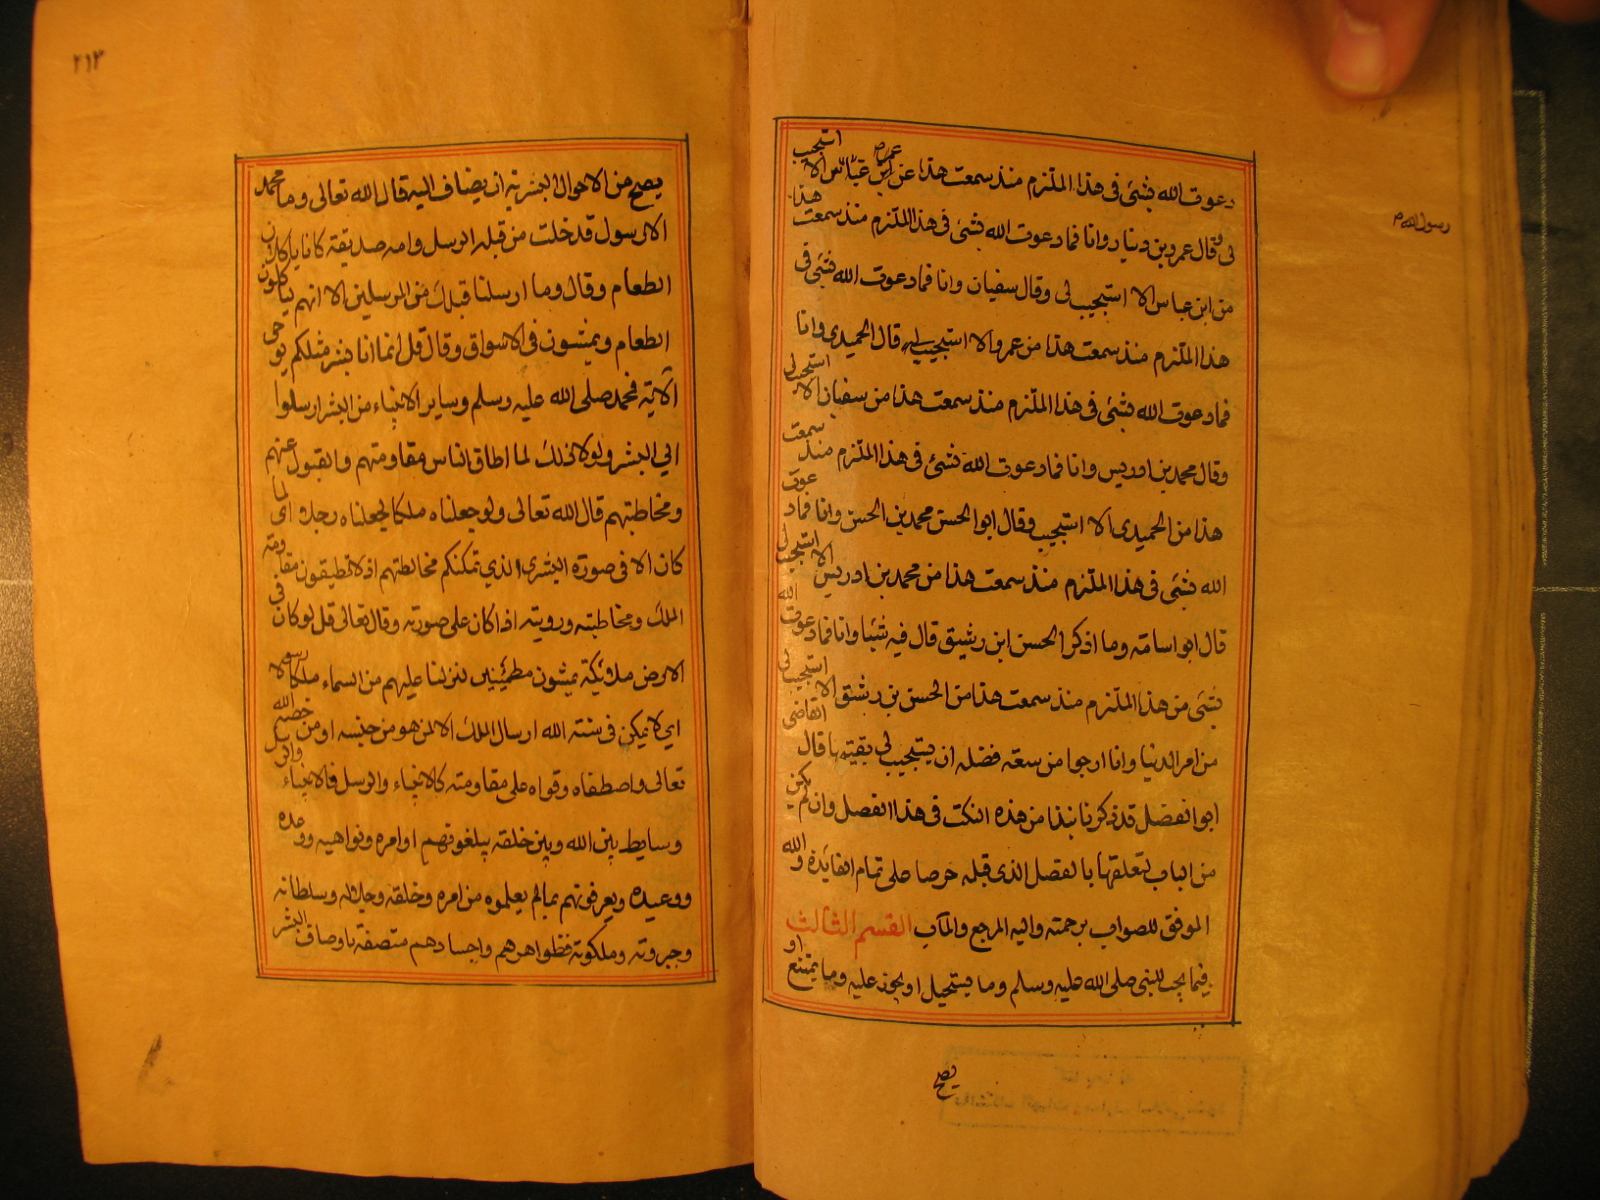 دعوت الله بشئ فى هذا الملتزم منذ سمعت هذا عن ابن عباس الا استجيب
لى وقال عمرو بن دينار وانا فما دعوت الله بشئ فى هذا الملتزم منذ سمعت هذا
من ابن عباس الا استجيب لى وقال سفيان وانا فما دعوت الله بشئ فى
هذا الملتزم منذ سمعت هذا من عمرو الا استجيب لى قال الحميدى وانا
فما دعوت الله بشئ فى هذا الملتزم منذ سمعت هذا من سفيان الا استجيب لى
وقال محمد بن ادريس وانا فما دعوت الله بشئ فى هذا الملتزم منذ سمعت
هذا من الحميدى الا استجيب وقال ابو الحسن محمد بن الحسن وانا فما دعوت
الله بشئ فى هذا الملتزم منذ سمعت هذا من محمد بن ادريس الا استجيب لى
قال ابو اسامة وما اذكر الحسن ابن رشيق قال فيه شيا وانا فما دعوت الله
بشئ من هذا الملتزم منذ سمعت هذا من الحسن بن رشيق الا استجيب لى
من امر الدنيا وانا ارجوا من سعة فضله ان يستجيب لى بقيتها قال القاضى
ابو الفضل قد ذكرنا نبذا من هذه النكت فى هذا الفصل وان لم يكن
من الباب لتعلقها بالفصل الذى قبله حرصا على تمام الفايدة والله
الموفق للصواب برحمته واليه المرجع والمآب القسم الثالث
فيما يجب للنبى صلى الله عليه وسلم وما يستحيل او يجوز عليه وما يمتنع او
يصح
رسول الله ص
٢١٣
يصح من الاحوال البشرية ان يضاف اليه قال الله تعالى وما محمد
الا رسول قد خلت من قبله الرسل وامه صديقة كانا ياكلان
الطعام وقال وما ارسلنا قبلك من المرسلين الا انهم لياكلون
الطعام ويمشون فى الاسواق وقال قل انما انا بشر مثلكم يوحى
الآية فمحمد صلى الله عليه وسلم وساير الانبياء من البشر ارسلوا
الى البشر ولولا ذلك لما اطاق الناس مقاومتهم والقبول عنهم
ومخاطبتهم قال الله تعالى ولو جعلناه ملكا لجعلناه رجلا اى لما
كان الا فى صورة البشرى الذي تمكنكم مخالطتهم اذ لا تطيقون مقاومة
الملك ومخاطبته ورويته اذا كان على صورته وقال تعالى قل لو كان فى
الارض ملايكة يمشون مطمئنين لنزلنا عليهم من السماء ملكا رسولا
اى لا يمكن فى سنة الله ارسال الملك الا لمن هو من جنسه او من خصه الله
تعالى واصطفاه وقواه على مقاومته كالانبياء والرسل فالانبياء والرسل
وسايط بين الله وبين خلقه يبلغونهم اوامره ونواهيه ووعده
ووعيده ويعرفونهم بما لم يعلموه من امره وخلقه وجلاله وسلطانه
وجبروته وملكوته فظواهرهم واجسادهم متصفة باوصاف البشر